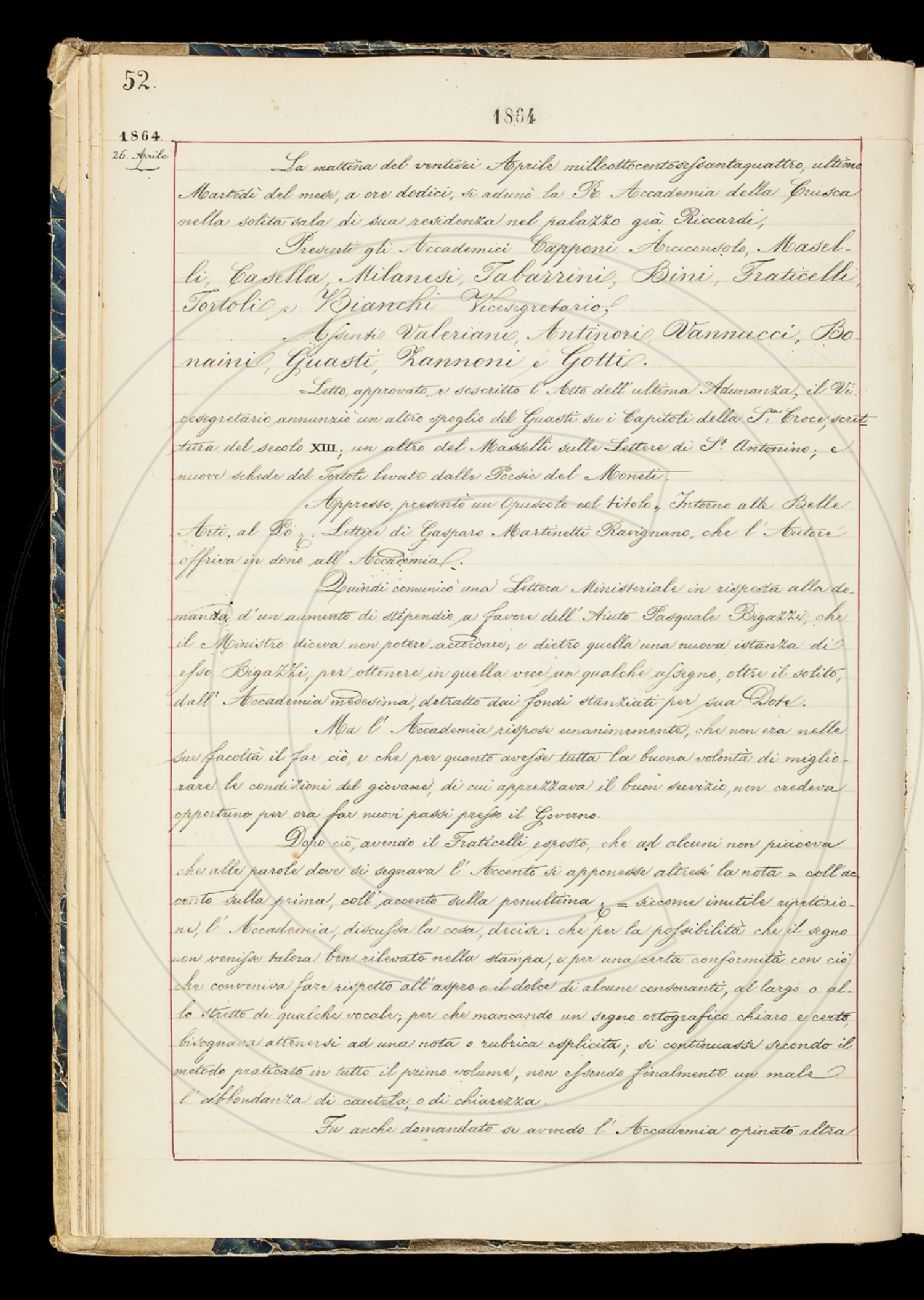 52.
1864
1864.
26. Aprile
La mattina del ventisei Aprile milleottocentosessantaquattro, ultimo
Martedì del mese, a ore dodici, si adunò la R. Accademia della Crusca
nella solita sala di sua residenza nel palazzo già Riccardi,
Presenti gli Accademici Capponi Arciconsolo, Masel-
li, Casella, Milanesi, Tabarrini, Bini, Fraticelli,
Tortoli e Bianchi Vicesegretario;
Assenti Valeriani, Antinori, Vannucci, Bo-
naini, Guasti, Zannoni e Gotti.
Letto, approvato, e soscritto l'Atto dell'ultima Adunanza, il Vi-
cesegretario annunziò un altro spoglio del Guasti su i Capitoli della S.ta Croce, scrit-
tura del secolo XIII; un altro del Masselli sulle Lettere di S.t Antonino; e
nuove schede del Tortoli levate dalle Poesie del Moneti.
Appresso, presentò un Opuscolo col titolo „ Intorno alle Belle
Arti, al Po „: Lettere di Gasparo Martinetti Ravignano, che l'Autore
offriva in dono all'Accademia.
Quindi comunicò una Lettera Ministeriale in risposta alla do-
manda, d'un aumento di stipendio a favore dell'Aiuto Pasquale Bigazzi, che
il Ministro diceva non potere accordare; e dietro quella una nuova istanza di
esso Bigazzi, per ottenere in quella vece un qualche assegno, oltre il solito,
dall'Accademia medesima, detratto dai fondi stanziati per sua Dote.
Ma l'Accademia rispose unanimemente, che non era nelle
sue facoltà il far ciò, e che per quanto avesse tutta la buona volontà di miglio-
rare le condizioni del giovane, di cui apprezzava il buon servizio, non credeva
opportuno per ora far nuovi passi presso il Governo.
Dopo ciò, avendo il Fraticelli esposto, che ad alcuni non piaceva
che alle parole dove si segnava l'Accento si apponesse altresì la nota = coll'ac-
cento sulla prima, coll'accento sulla penultima &. = siccome inutile ripetizio-
ne, l'Accademia, discussa la cosa, decise: che per la possibilità che il segno
non venisse talora ben rilevato nella stampa, e per una certa conformità con ciò
che conveniva fare rispetto all'aspro o il dolce di alcune consonanti, al largo o al-
lo stretto di qualche vocale; per che mancando un segno ortografico chiaro e certo,
bisognava attenersi ad una nota o rubrica esplicita; si continuasse secondo il
metodo praticato in tutto il primo volume, non essendo finalmente un male
l'abbondanza di cautela, o di chiarezza.
Fu anche domandato se avendo l'Accademia opinato altra